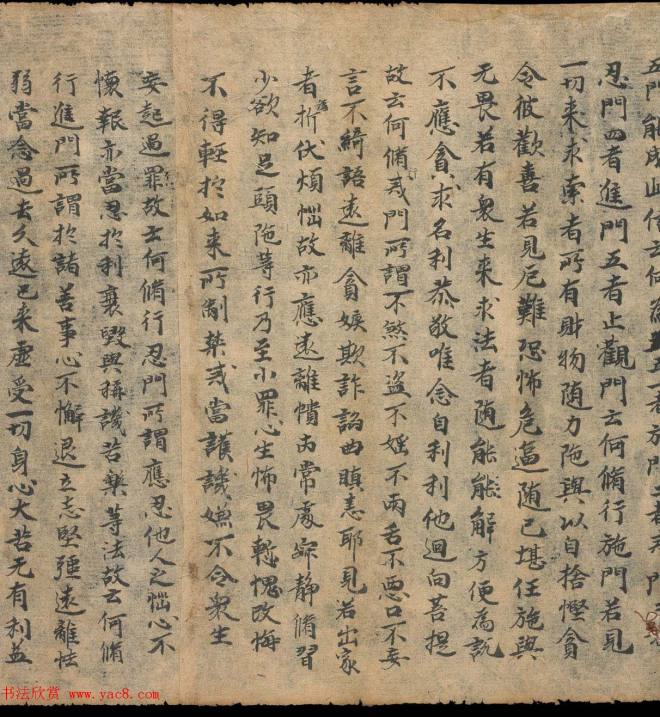 五門能成此信云何為五一者施門二者戒門三者
忍門四者進門五者止觀門云何脩行施門若見
一切来求索者所有財物随力施與以自捨慳貪
令彼歡喜若見厄難恐怖危逼随己堪任施與
无畏若有衆生来求法者随能能解方便為說
不應貪求名利恭敬唯念自利利他迴向菩提
故云何脩戒門所謂不煞不盜不婬不兩舌不惡口不妄
言不綺語遠離貪嫉欺詐諂曲瞋恚耶見若出家
者為折伏煩惱故亦應遠離憒丙常處寂静脩習
少欲知足頭陁等行乃至小罪心生怖畏慙愧改悔
不得輕扵如来所制禁戒當護譏嫌不令衆生
妄起過罪故云何脩行忍門所謂應忍他人之惱心不
懷報亦當忍扵利衰毀與稱譏苦樂等法故云何脩
行進門所謂扵諸善事心不懈退立志堅強遠離怯
弱當念過去久遠已来虚受一切身心大苦无有利益
书法欣赏 www.yac8.com